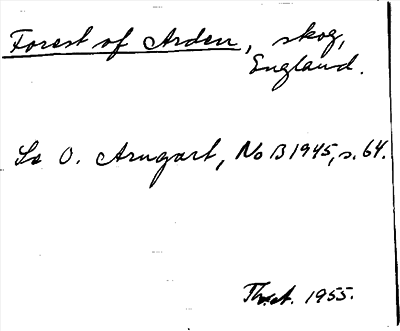 Forest of Arden, skog,
England.
Se O. Arngart, NoB 1945, s. 64.
1955.